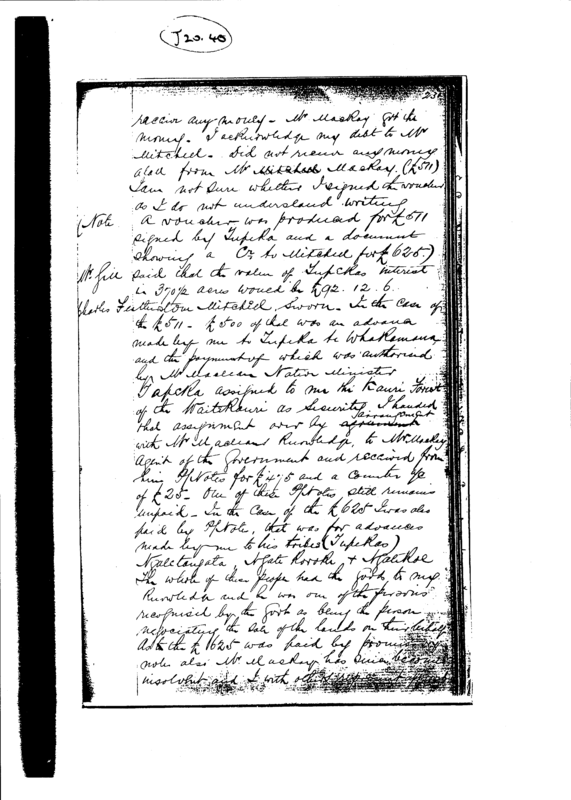 J 20. 40
23
receive any money - Mr Mackay got the
money. I acknowledge my debt to Mr
Mitchell. Did not receive any money
at all from Mr Mitchell Mackay. (£511)
I am not sure whether I signed the voucher
as I do not understand writing
(Note A voucher was produced for £511
signed by Tupeka and a document
showing a Cr to Mitchell for £625.)
Mr Gill said that the value of Tupekas interest
in 370½ acres would be £92. 12. 6.
Charles Featherston Mitchell Sworn. In the case of
the £511 - £500 of that was an advance
made by me to Tupeka te Whakamana
and the payment of which was authorised
by Mr Maclean Native Minister
Tapeka assigned to me the Kauri Forest
of the Waitekauri as Security. I handed
that assignment over by agreement arrangement
with Mr Macleans Knowledge, to Mr Mackay
Agent of the Government and received from
him P/Notes for £475 and a Counter
of £25 - One of these P/Notes still remains
unpaid - In the Case of the £625 I was also
paid by P/Note, that was for advances
made by me to his tribes (Tupekas)
Ngatetangata, Ngate Koroke + Ngatikoe
The whole of these people had the Goods to my
Knowledge and he was one of the persons
recognised by the Govt as being the person
negociating the sale of the lands on their behalf
As the £625 was paid by promissory
note also Mr Mackay has since become
insolvent and I with